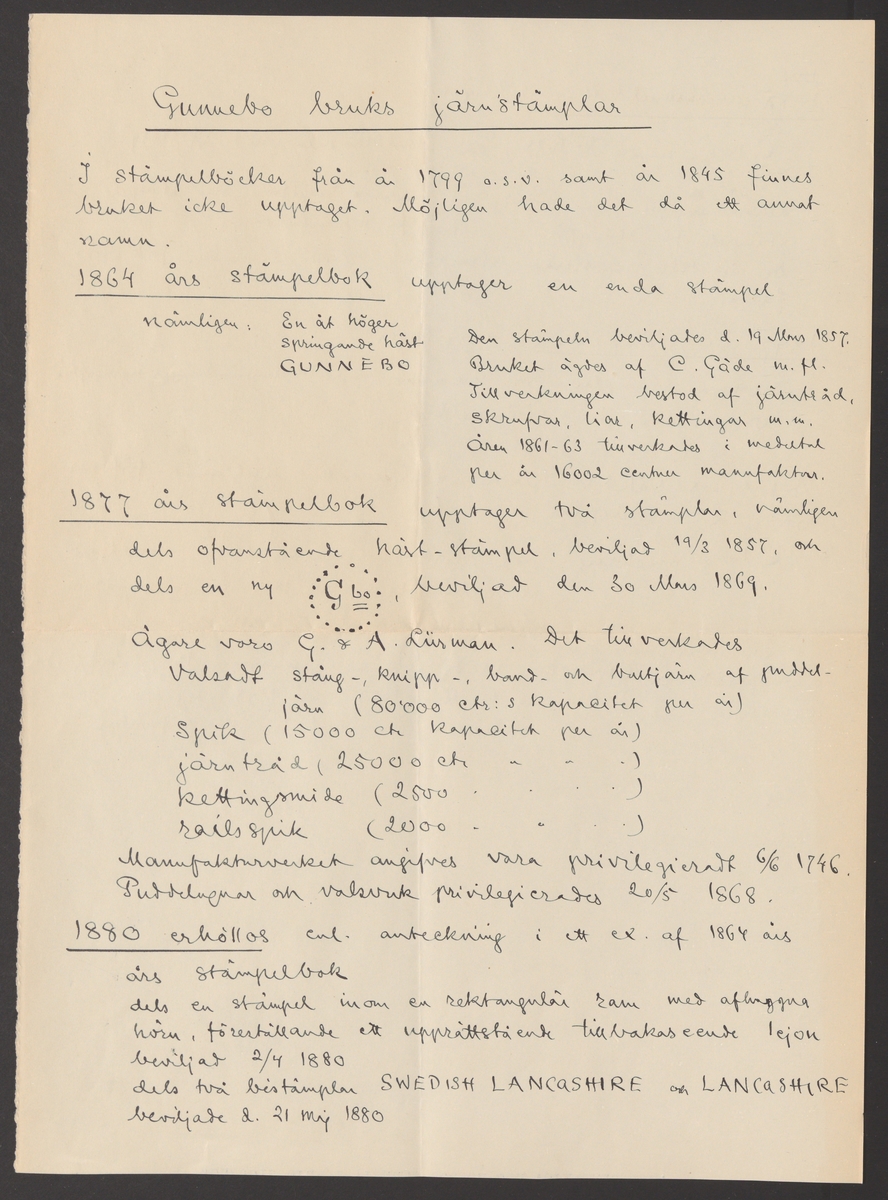 Gunnebo bruks järnstämplar
I stämpelböcker från år 1799 o.s.v. samt år 1845 finnes
bruket icke upptaget. Möjligen hade det då ett annat
namn.
1864 års stämpelbok upptager en enda stämpel
nämligen: En åt höger
springande häst
GUNNEBO
Den stämpeln beviljades d. 19 Mars 1857.
Bruket ägdes af C. Gäde m. fl.
Tillverkningen bestod af järntråd,
skrufvar, liar, kettingar m.m.
Åren 1861-63 tillverkades i medeltal
per år 16002 centner manufaktur.
1877 års stämpelbok upptager två stämplar, nämligen
dels ofvanstående häst-stämpel, beviljad 19/3 1857, och
dels en ny G bo, beviljad den 30 Mars 1869.
Ägare voro G. & A. Lürman. Det tillverkades
Valsadt stång-, knipp-, band- och bultjärn af puddel-
järn (80'000 ctr:s kapacitet per år)
Spik (15000 ctr kapacitet per år)
järntråd (25000 ctr " " ")
kettingsmide (2500 " " " ")
railsspik (2000 " " " ")
Manufakturverket angifves vara privilegieradt 6/6 1746.
Puddelugnar och valsverk privilegierades 20/5 1868.
1880 erhöllos enl. anteckning i ett ex. af 1864 års
års stämpelbok
dels en stämpel inom en rektangulär ram med afhuggna
hörn, föreställande ett upprättstående tillbakaseende lejon
beviljad 2/4 1880
dels två bistämplar SWEDISH LANCASHIRE och LANCASHIRE
beviljade d. 21 Maj 1880